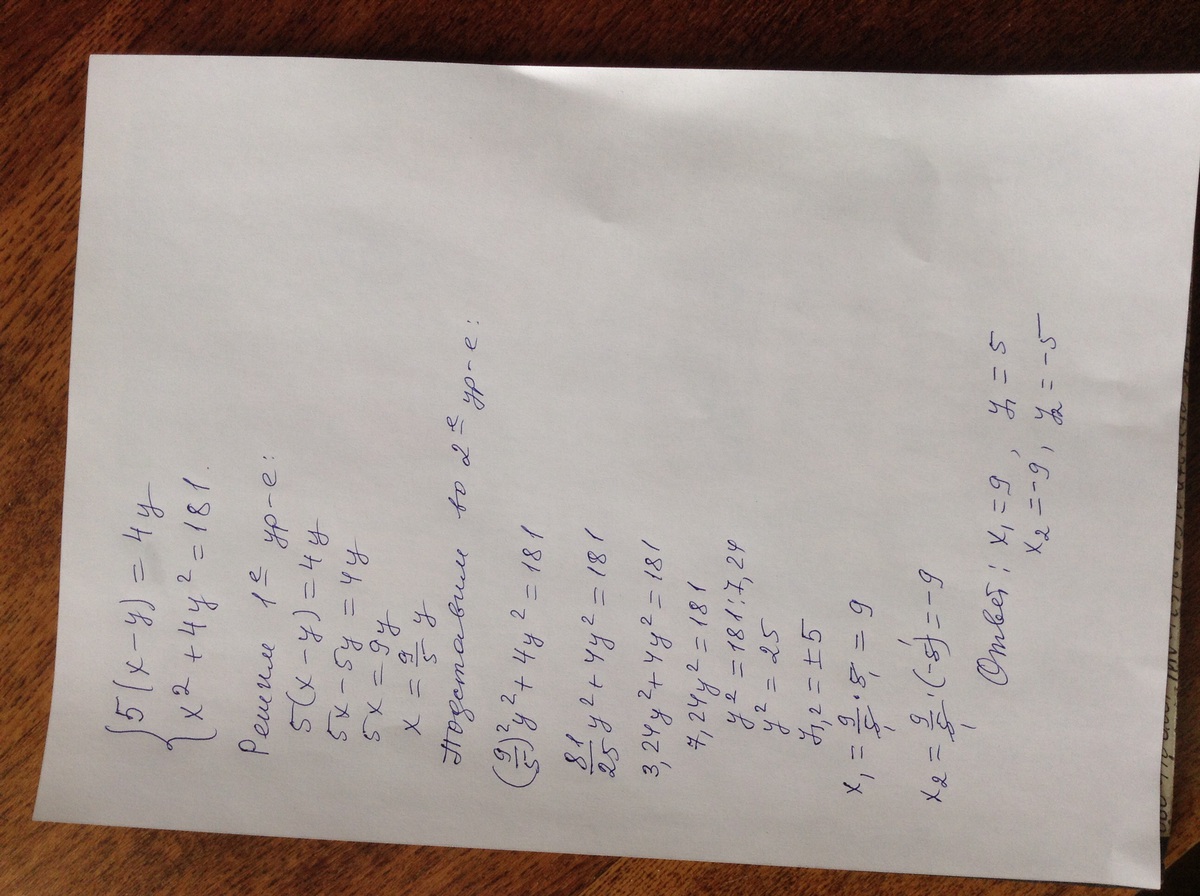 {5(x-y)=4y
x²+4y²=181.
Решим 1е ур-е:
5(x-y)=4y
5x-5y=4y
5x=9y
x=9/5 y
Подставим во 2е ур-е:
(9/5)²y²+4y²=181
81/25 y²+4y²=181
3,24y²+4y²=181
7,24y²=181
y²=181:7,24
y²=25
y₁,₂=±5
x₁=9/5·5=9
x₂=9/5·(-5)=-9
Ответ: x₁=9, y₁=5
x₂=-9, y₂=-5